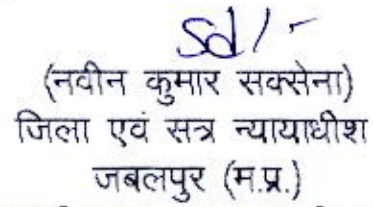 Sd/-
(नवीन कुमार सक्सेना)
जिला एवं सत्र न्यायाधीश
जबलपुर (म.प्र.)